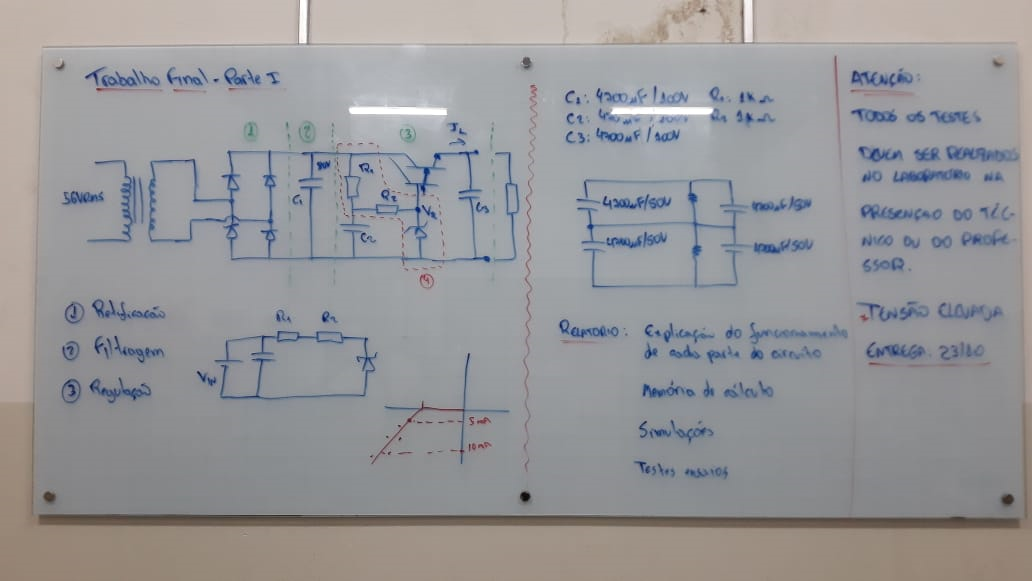 Trabalho Final - Parte I
1
2
3
56Vrms
80V
C1
R1
R2
C2
VZ
IL
C3
4
1 Retificação
2 Filtragem
3 Regulação
VIN
R1
R2
5mA
10mA
C1: 4700uF/100V R1: 1KΩ
C2: 4700uF/100V R2 1KΩ
C3: 4700uF/100V
4700uF/50V
4700uF/50V
4700uF/50V
4700uF/50V
RELATÓRIO: Explicação do funcionamento
de cada parte do circuito
Memória de cálculo
Simulações
Testes ensaios
ATENÇÃO:
TODOS OS TESTES
DEVEM SER REALIZADOS
NO LABORATÓRIO NA
PRESENÇA DO TÉC-
NICO OU DO PROFE-
SSOR.
TENSÃO ELEVADA
ENTREGA: 23/10